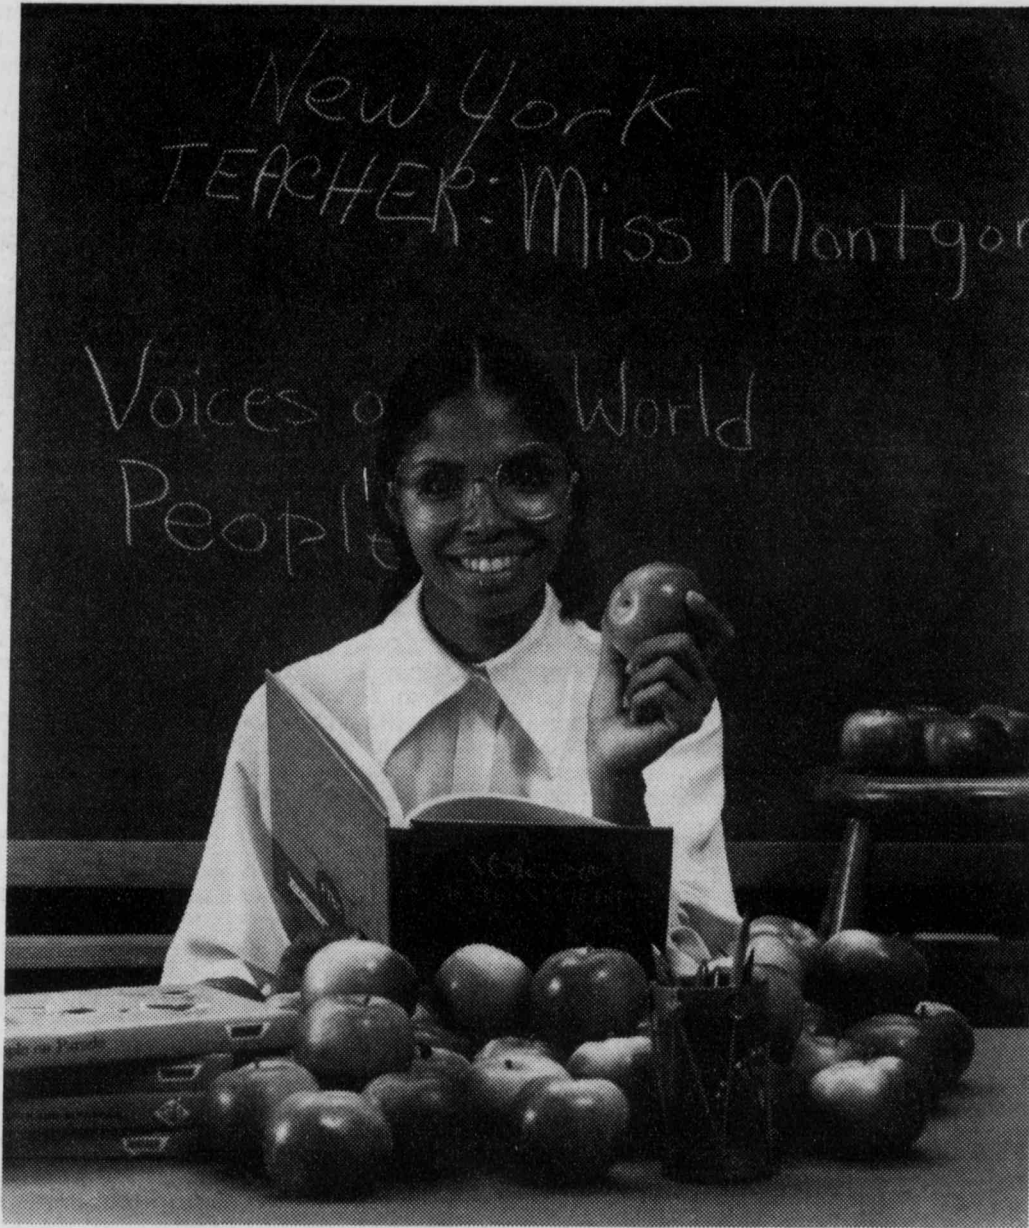 New York
TEACHER: Miss Montgor
Voices o World
People
on Parade